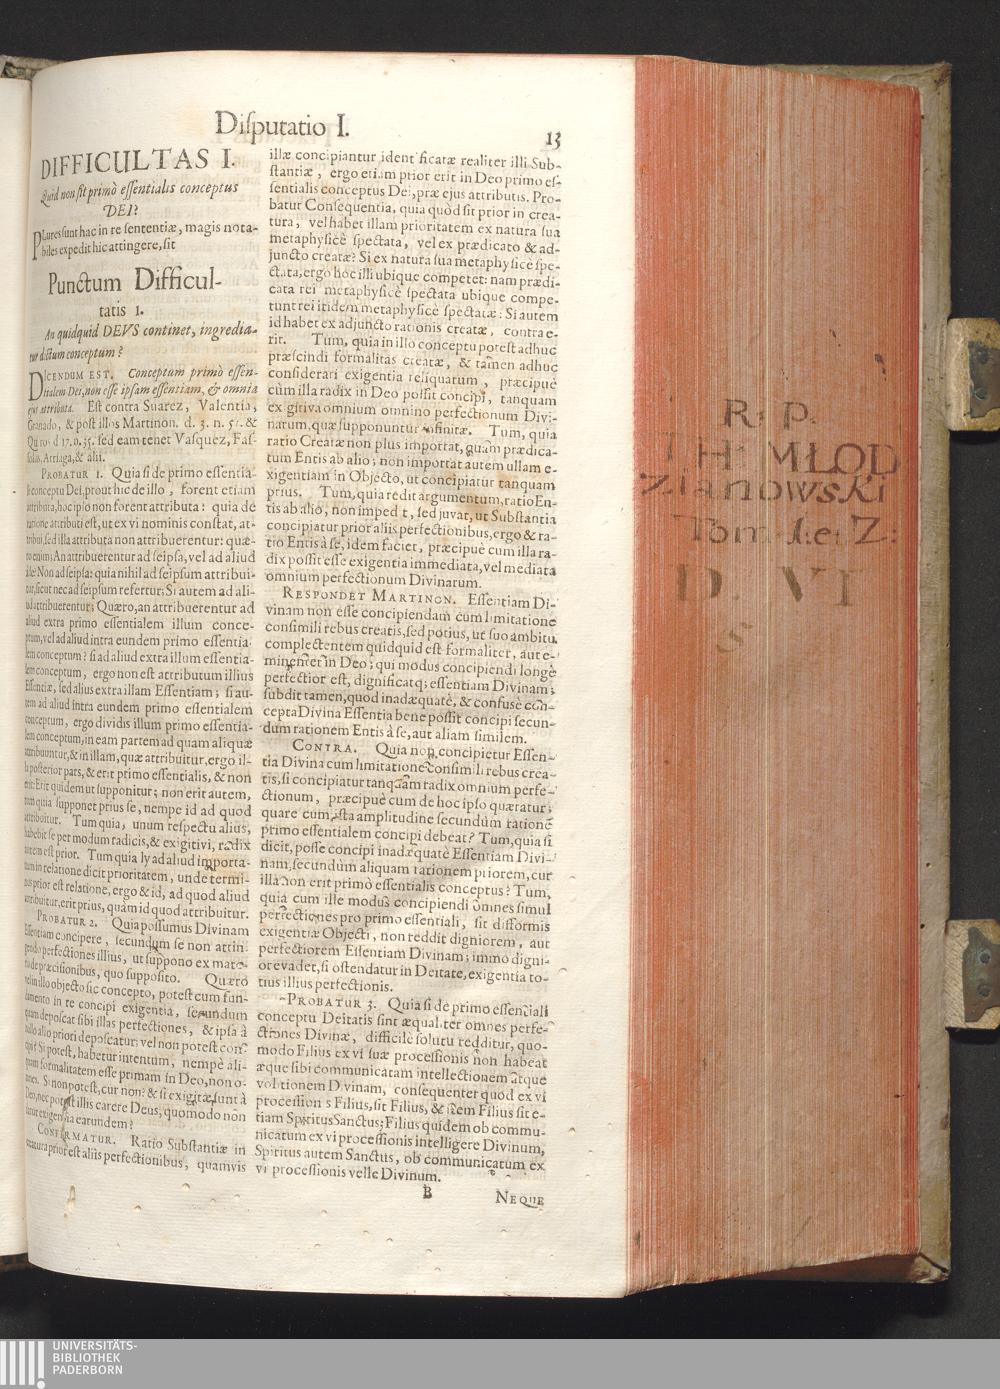 Disputatio I.
13
DIFFICULTAS I.
Quid non sit primò essentialis conceptus
DEI?
PLures sunt hac in re sententiæ, magis nota-
biles expedit hic attingere, sit
Punctum Difficul-
tatis 1.
An quidquid DEVS continet, ingredia-
tur dictum conceptum?
DICENDUM EST. Conceptum primò essen-
tialem Dei, non esse ipsam essentiam, & omnia
ejus attributa. Est contra Suarez, Valentia,
Granado, & post illos Martinon. d. 3. n. 51. &
Quiros d 17. n. 35. sed eam tenet Vasquez, Fas-
solus, Arriaga, & alii.
PROBATUR 1. Quia si de primo essentia-
li conceptu Dei, prout hic de illo, forent etiam
attributa, hoc ipso non forent attributa: quia de
ratione attributi est, ut ex vi nominis constat, at-
tribui, sed illa attributa non attribuerentur: quæ-
ro enim: An attribuerentur ad seipsa, vel ad aliud
à se? Non ad seipsa: quia nihil ad seipsum attribui-
tur, sicut nec ad seipsum refertur; Si autem ad ali-
ud attribuerentur; Quæro, an attribuerentur ad
aliud extra primo essentialem illum conce-
ptum, vel ad aliud intra eundem primo essentia-
lem conceptum? si ad aliud extra illum essentia-
lem conceptum, ergo non est attributum illius
Essentiæ, sed alius extra illam Essentiam; si au-
tem ad aliud intra eundem primo essentialem
conceptum, ergo dividis illum primo essentia-
lem conceptum, in eam partem ad quam aliquæ
attribuuntur, & in illam, quæ attribuitur, ergo il-
la posterior pars, & erit primo essentialis, & non
erit: Erit quidem ut supponitur; non erit autem,
tum quia supponet prius se, nempe id ad quod
attribuitur. Tum quia, unum respectu alius,
habebit se per modum radicis, & exigitivi, radix
autem est prior. Tum quia ly ad aliud importa-
tum in relatione dicit prioritatem, unde termi-
nus prior est relatione, ergo & id, ad quod aliud
attribuitur, erit prius, quàm id quod attribuitur.
PROBATUR 2. Quia possumus Divinam
Essentiam concipere, secundum se non attin-
gendo perfectiones illius, ut suppono ex mate-
ria de præcisionibus, quo supposito. Quæro
vel in illo objecto sic concepto, potest cum fun-
damento in re concipi exigentia, secundum
quam deposcat sibi illas perfectiones, & ipsa à
nullo alio priori deposcatur: vel non potest con-
cipi? Si potest, habetur intentum, nempè ali-
quam formalitatem esse primam in Deo, non o-
mnes. Si non potest, cur non? & si exigitæ sunt à
Deo, nec potest illis carere Deus; quomodo non
datur exigentia earundem?
CONFIRMATUR. Ratio Substantiæ in
creatura prior est aliis perfectionibus, quamvis
illæ concipiantur identificatæ realiter illi Sub-
stantiæ, ergo etiam prior erit in Deo primo es-
sentialis conceptus Dei, præ ejus attributis. Pro-
batur Consequentia, quia quòd sit prior in crea-
tura, vel habet illam prioritatem ex natura sua
metaphysicè spectata, vel ex prædicato & ad-
juncto creatæ? Si ex natura sua metaphysicè spe-
ctata, ergo hoc illi ubique competet: nam prædi-
cata rei metaphysicè spectata ubique compe-
tunt rei itidem metaphysicè spectatæ: Si autem
id habet ex adjuncto rationis creatæ, contra e-
rit. Tum, quia in illo conceptu potest adhuc
præscindi formalitas creatæ, & tamen adhuc
considerari exigentia reliquarum, præcipuè
cùm illa radix in Deo possit concipi, tanquam
exigitiva omnium omnino perfectionum Divi-
narum, quæ supponuntur infinitæ. Tum, quia
ratio Creatæ non plus importat, quàm prædica-
tum Entis ab alio; non importat autem ullam e-
xigentiam in Objecto, ut concipiatur tanquam
prius. Tum, quia redit argumentum, ratio En-
tis ab alio, non impedit, sed juvat, ut Substantia
concipiatur prior aliis perfectionibus, ergo & ra-
tio Entis à se, idem faciet, præcipuè cum illa ra-
dix possit esse exigentia immediata, vel mediata
omnium perfectionum Divinarum.
RESPONDET MARTINON. Essentiam Di-
vinam non esse concipiendam cum limitatione
consimili rebus creatis, sed potius, ut suo ambitu
complectentem quidquid est formaliter, aut e-
minenter in Deo; qui modus concipiendi longè
perfectior est, dignificatq; essentiam Divinam;
subdit tamen, quod inadæquatè, & confusè con-
cepta Divina Essentia bene possit concipi secun-
dum rationem Entis à se, aut aliam similem.
CONTRA. Quia non concipietur Essen-
tia Divina cum limitatione consimili rebus crea-
tis, si concipiatur tanquam radix omnium perfe-
ctionum, præcipuè cum de hoc ipso quæratur;
quare cum ista amplitudine secundùm rationẽ
primo essentialem concipi debeat? Tum, quia si
dicit, posse concipi inadæquatè Essentiam Divi-
nam, secundùm aliquam rationem priorem, cur
illa non erit primò essentialis conceptus? Tum,
quia cum ille modus concipiendi omnes simul
perfectiones pro primo essentiali, sit difformis
exigentiæ Objecti, non reddit digniorem, aut
perfectiorem Essentiam Divinam; immo digni-
or evadet, si ostendatur in Deitate, exigentia to-
tius illius perfectionis.
PROBATUR 3. Quia si de primo essentiali
conceptu Deitatis sint æqualiter omnes perfe-
ctiones Divinæ, difficile solutu redditur, quo-
modo Filius ex vi suæ processionis non habeat
æque sibi communicatam intellectionem atque
volitionem Divinam, consequenter quod ex vi
processionis Filius, sit Filius, & item Filius sit e-
tiam Spiritus Sanctus; Filius quidem ob commu-
nicatum ex vi processionis intelligere Divinum,
Spiritus autem Sanctus, ob communicatum ex
vi processionis velle Divinum.
B
NEQUE
R: P:
TH: MŁOD
Zianowski
Tom 1: et 2:
D. VI
5
UNIVERSITÄTS-
BIBLIOTHEK
PADERBORN